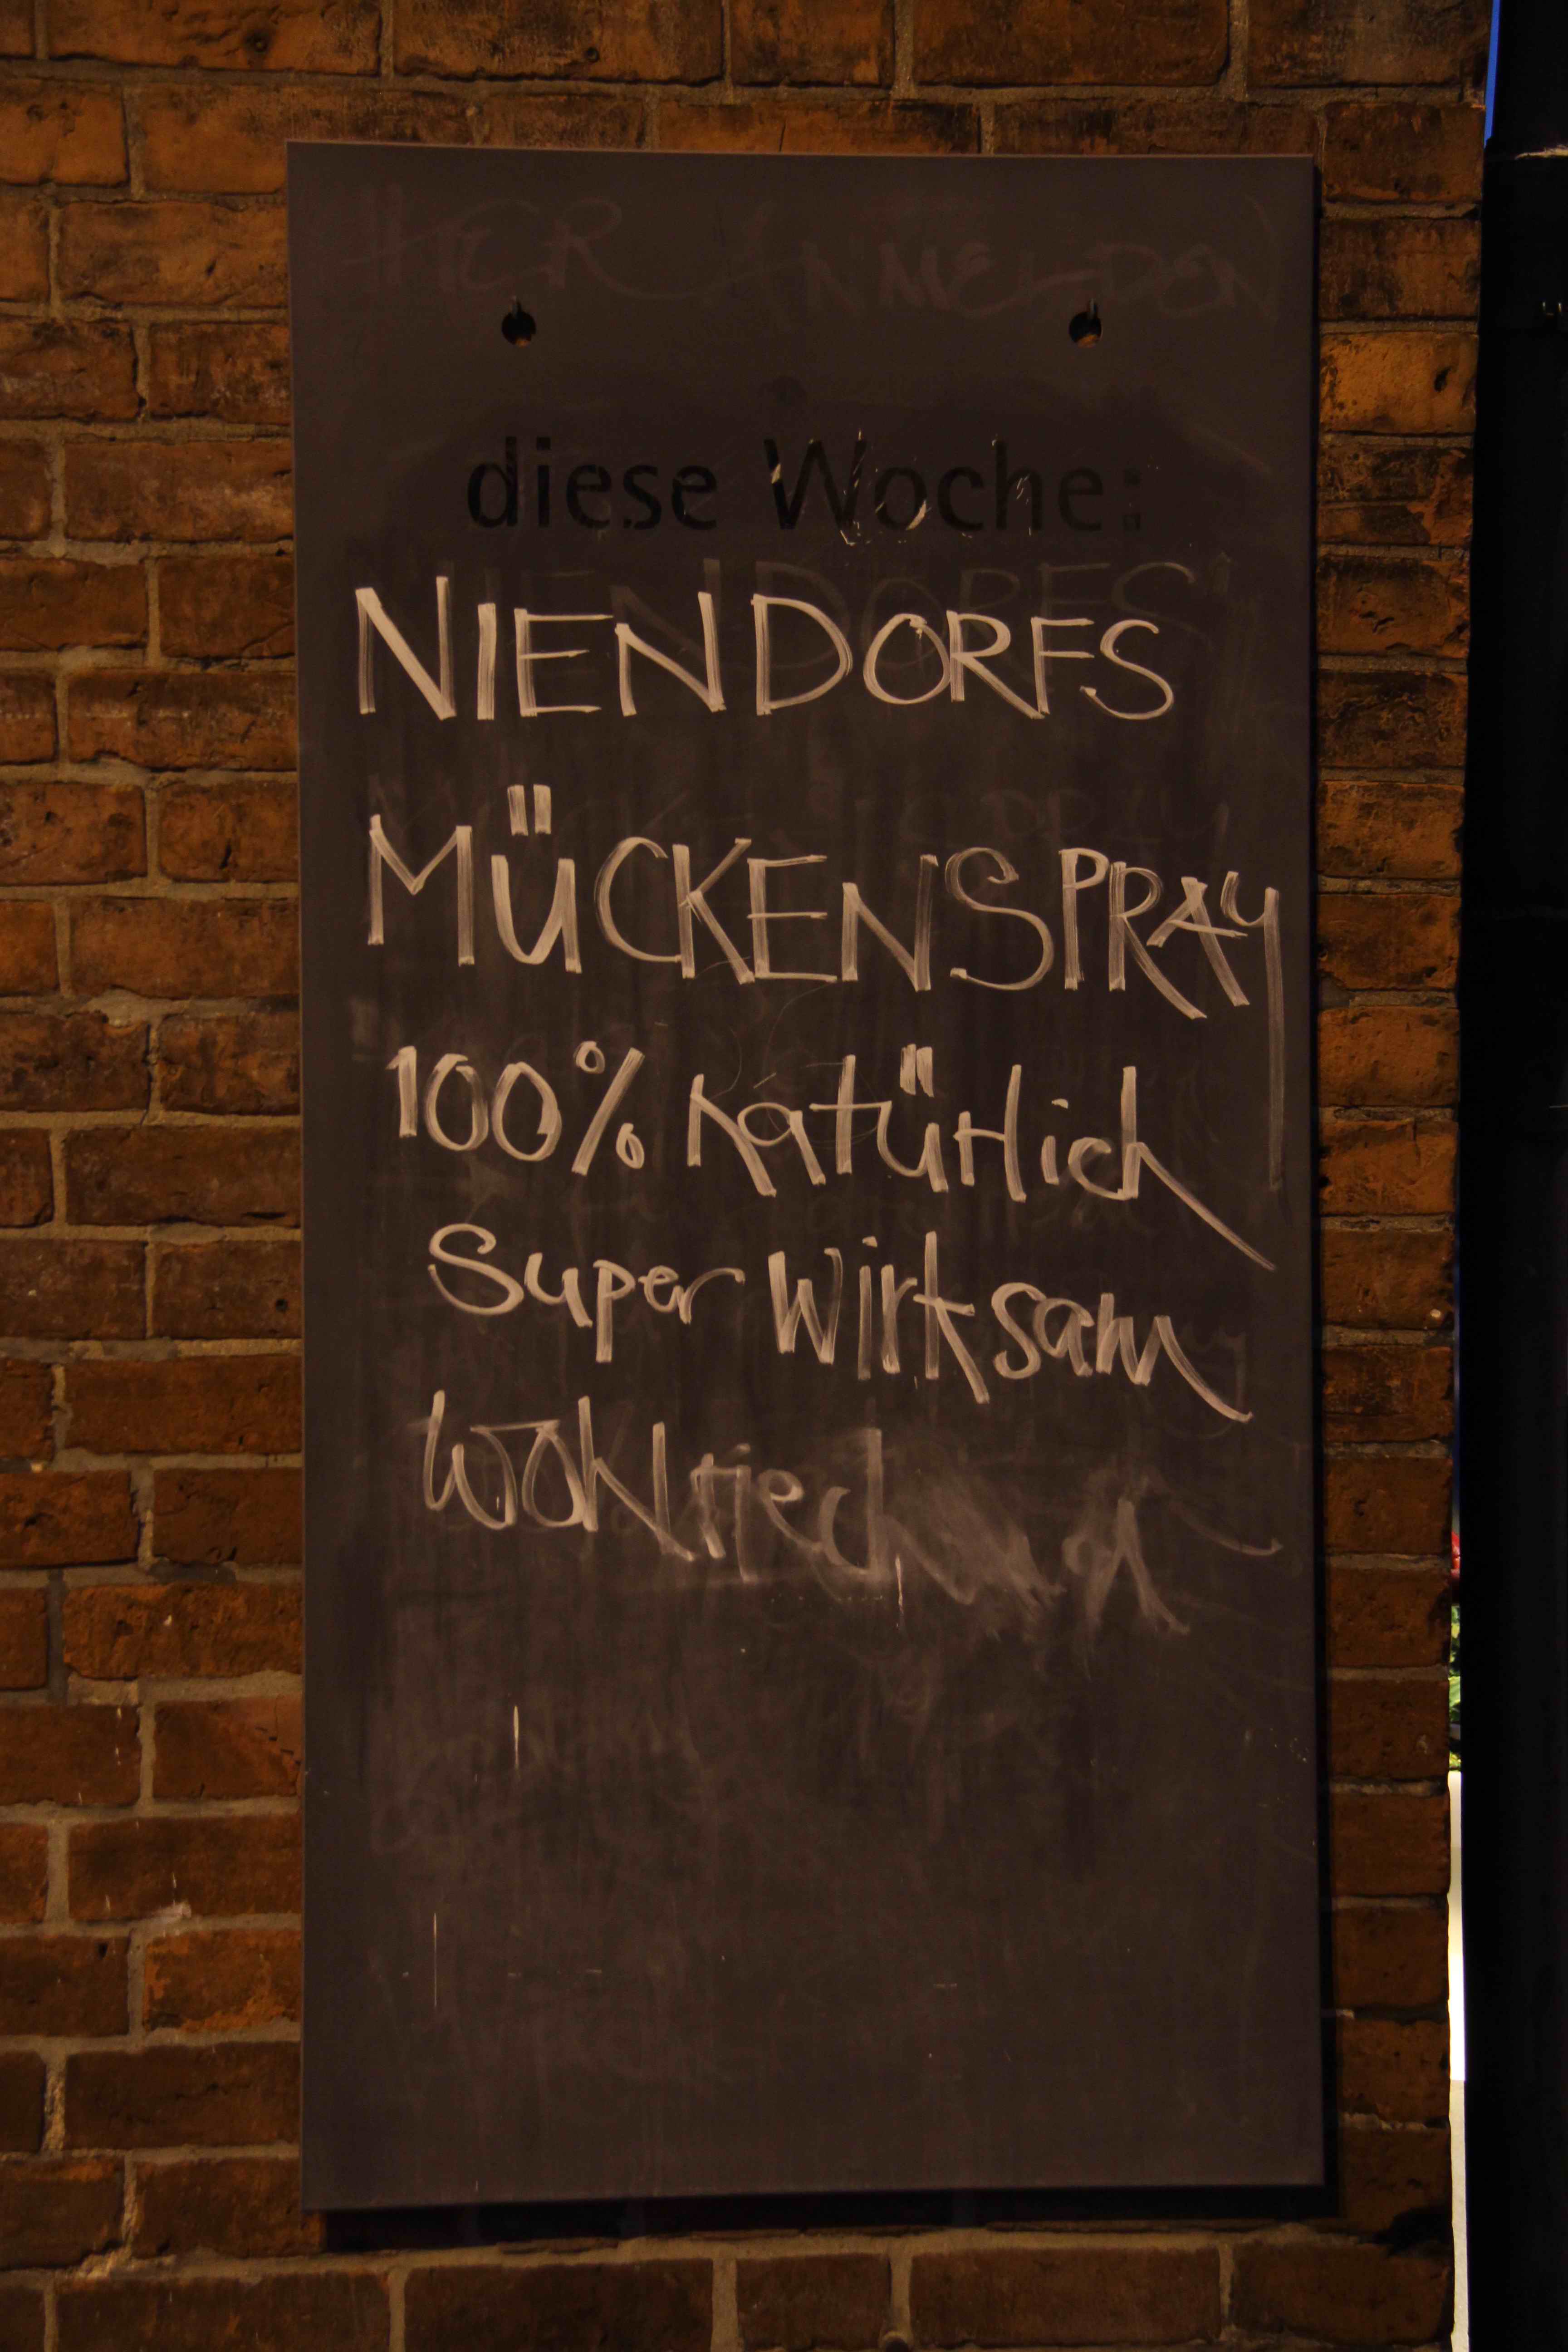 HIER ANMELDEN
diese Woche:
NIENDORFS
MÜCKENSPRAY
100% natürlich
Super wirksam
wohlriechend